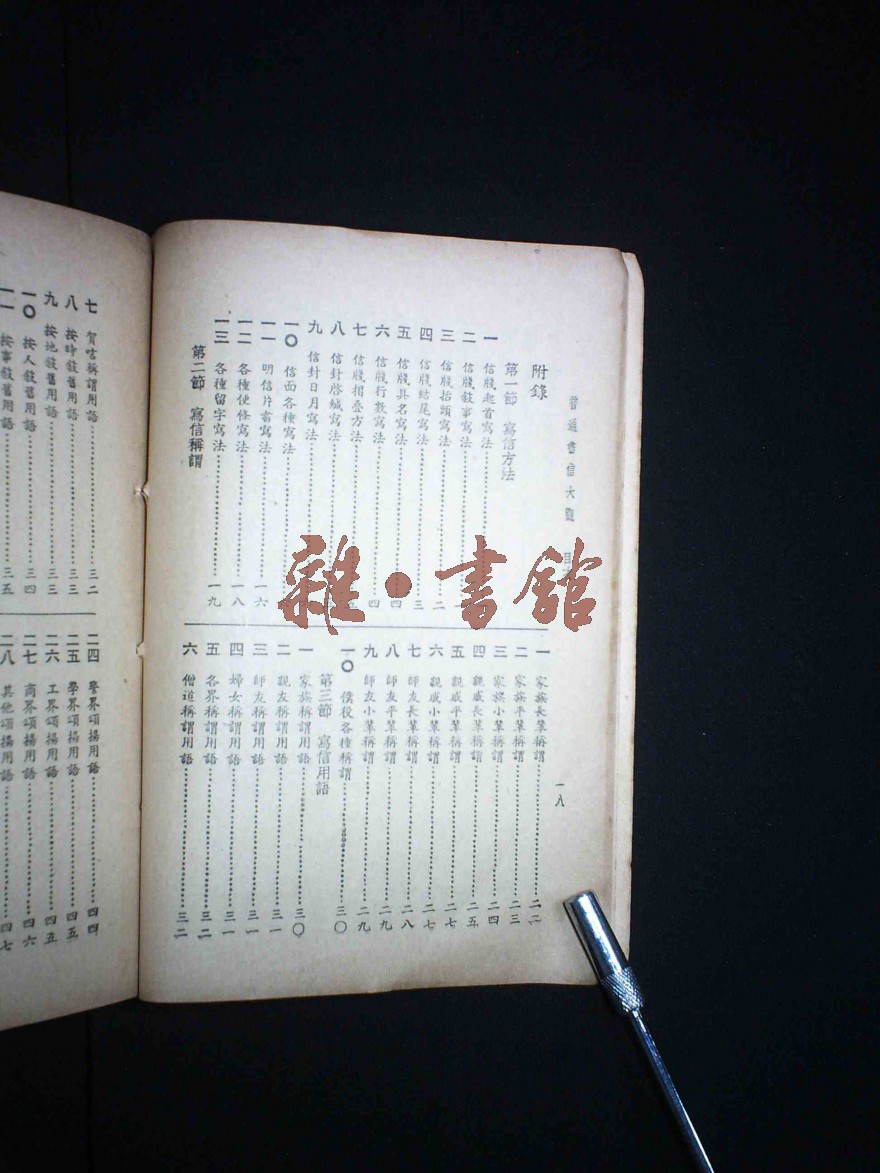 普通書信大觀 目
附錄
第一節 寫信方法
一 信牋起首寫法
二 信牋敍事寫法……一
三 信牋抬頭寫法……二
四 信牋結尾寫法……三
五 信牋具名寫法……四
六 信牋行數寫法……四
七 信牋摺叠方法……五
八 信封啓緘寫法
九 信封日月寫法
一〇 信面各種寫法
一一 明信片書寫法……一六
一二 各種便條寫法……一八
一三 各種留字寫法……一九
第二節 寫信稱謂
一 家族長輩稱謂……二二
二 家族平輩稱謂……二三
三 家族小輩稱謂……二四
四 親戚長輩稱謂……二五
五 親戚平輩稱謂……二七
六 親戚小輩稱謂……二七
七 師友長輩稱謂……二八
八 師友平輩稱謂……二九
九 師友小輩稱謂……二九
一〇 僕役各種稱謂……三〇
第三節 寫信用語
一 家族稱謂用語……三〇
二 親友稱謂用語……三一
三 師友稱謂用語……三一
四 婦女稱謂用語……三一
五 各界稱謂用語……三二
六 僧道稱謂用語……三二
一八
七 賀唁稱謂用語……三二
八 按時敍舊用語……三三
九 按地敍舊用語……三三
一〇 按人敍舊用語……三四
一一 按事敍舊用語……三五
二四 警界頌揚用語……四四
二五 學界頌揚用語……四五
二六 工界頌揚用語……四五
二七 商界頌揚用語……四六
二八 其他頌揚用語……四七
雜·書館